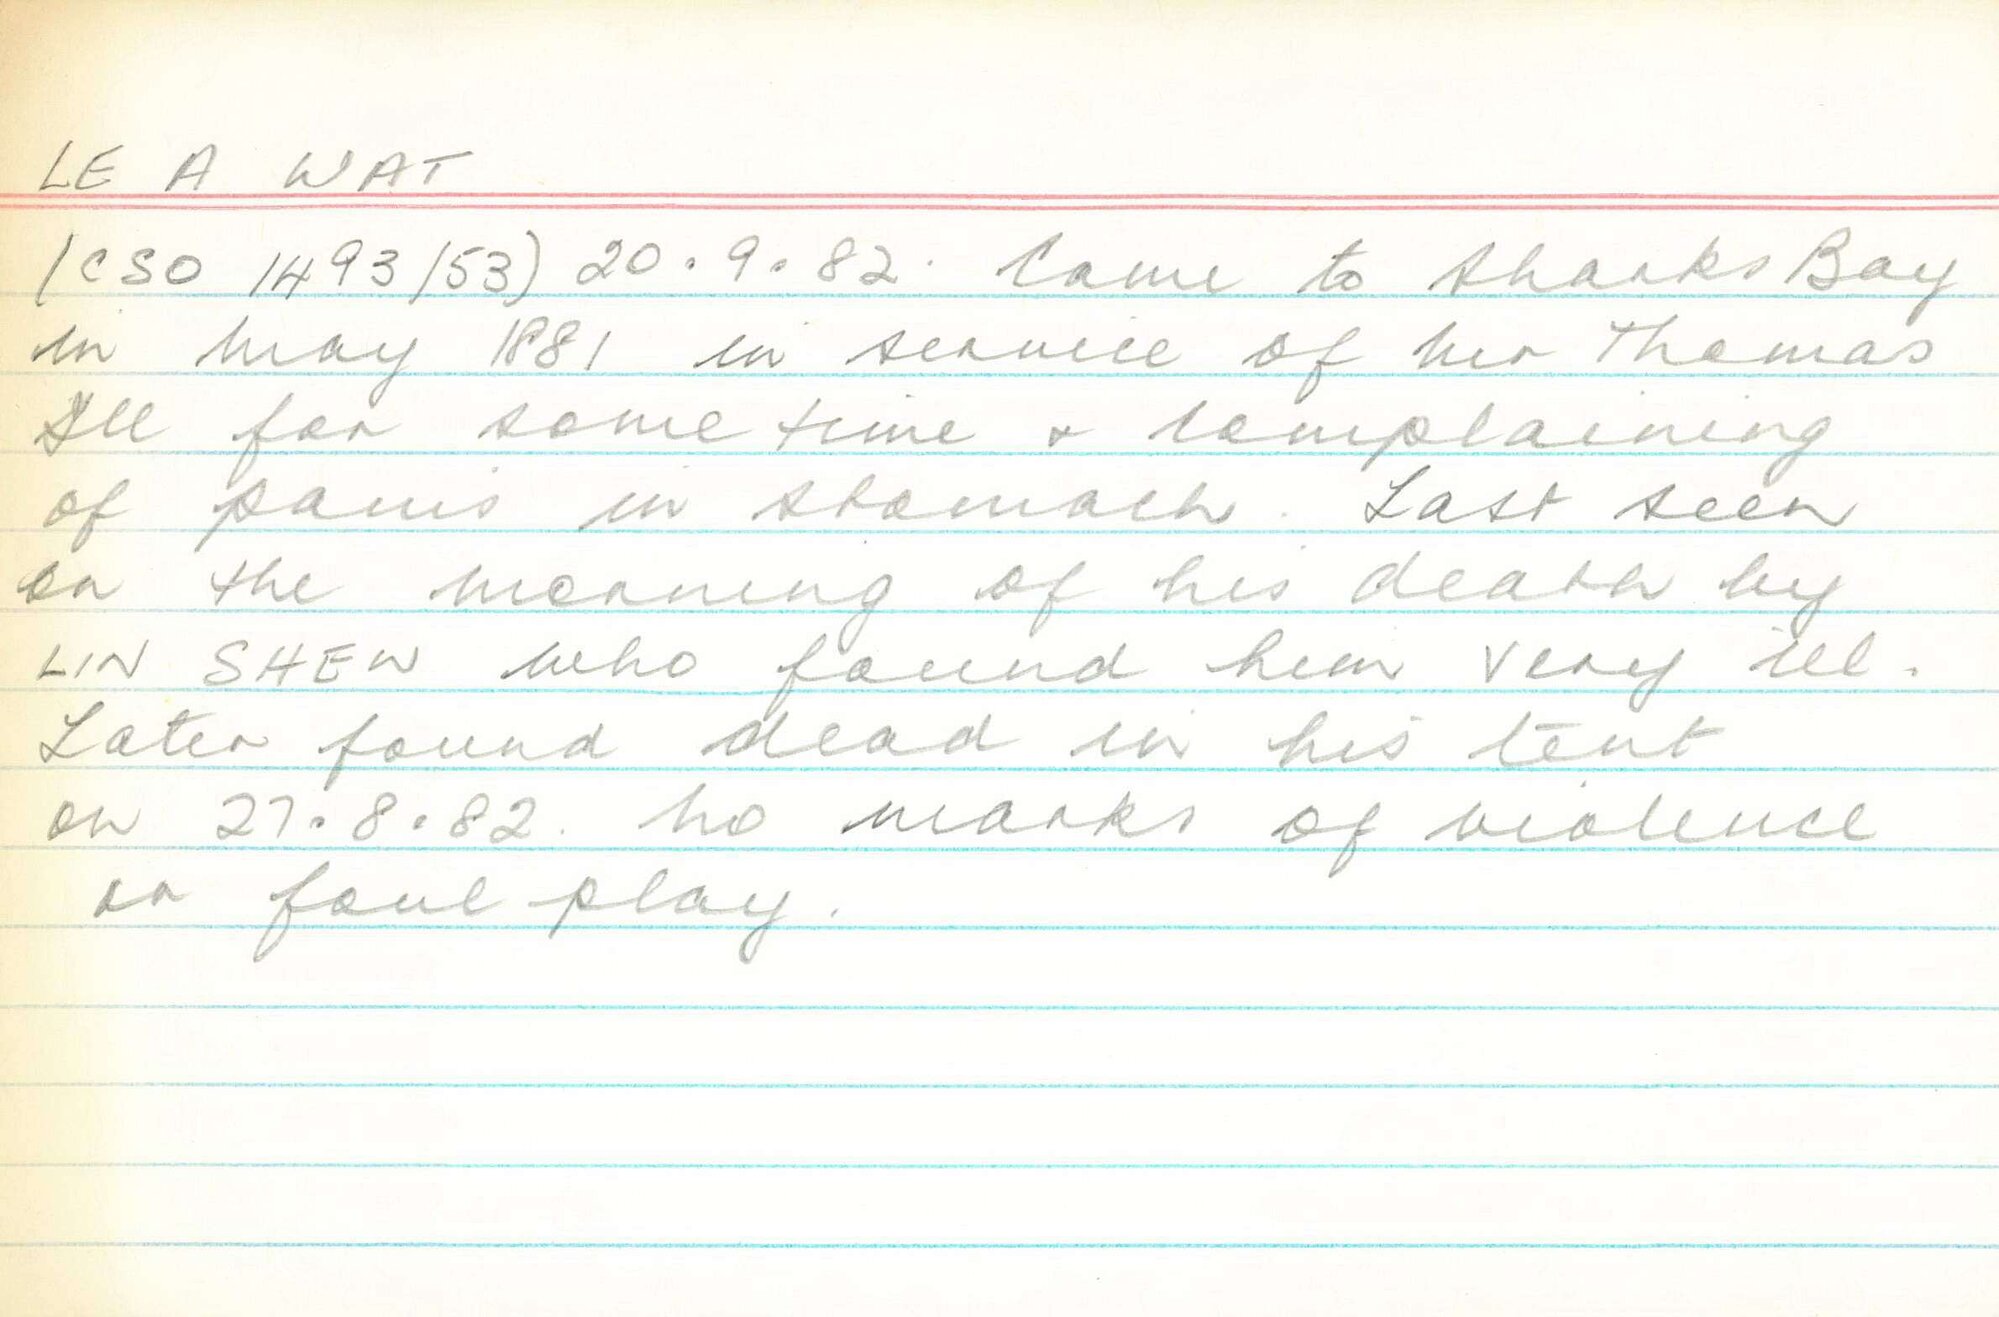 LE A WAT
(CSO 1493/53) 20.9.82. Came to Sharks Bay
in May 1881 in service of Mr Thomas
Ill for some time & complaining
of pains in stomach. Last seen
on the morning of his death by
LIN SHEW who found him very ill.
Later found dead in his tent
on 27.8.82. No marks of violence
or foul play.